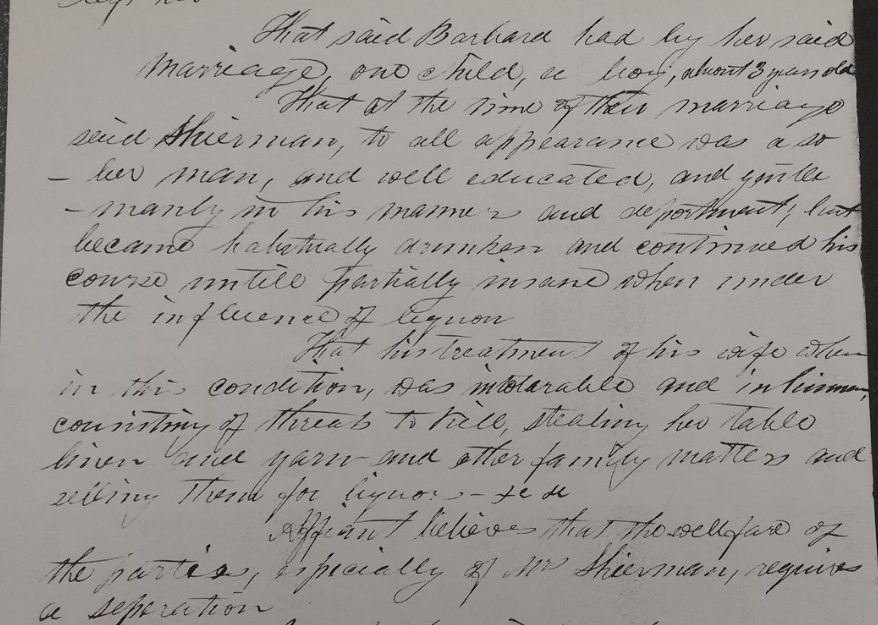 That said Barbara had by her said
marriage, one child, a boy, about 3 years old
That at the time of their marriage
said Shierman, to all appearance was a so
- ber man, and well educated, and gentle
- manly in his manners and deportment, but
became habitually drunken and continued his
course untill partially insane when under
the influence of liquor
That his treatment of his wife when
in this condition, was intolarable and inhuman,
consisting of threats to kill, stealing her table
linen and yarn - and other family matters and
selling them for liquor - &c &c
Affiant believes that the wellfare of
the parties, especially of Mrs Shierman, requires
a seperation